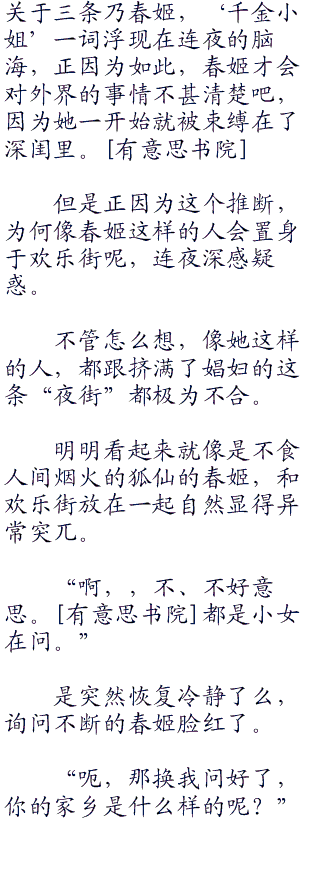 关于三条乃春姬，‘千金小
姐’一词浮现在连夜的脑
海，正因为如此，春姬才会
对外界的事情不甚清楚吧，
因为她一开始就被束缚在了
深闺里。[有意思书院]
但是正因为这个推断，
为何像春姬这样的人会置身
于欢乐街呢，连夜深感疑
惑。
不管怎么想，像她这样
的人，都跟挤满了娼妇的这
条“夜街”都极为不合。
明明看起来就像是不食
人间烟火的狐仙的春姬，和
欢乐街放在一起自然显得异
常突兀。
“啊，，不、不好意
思。[有意思书院]都是小女
在问。”
是突然恢复冷静了么，
询问不断的春姬脸红了。
“呃，那换我问好了，
你的家乡是什么样的呢？”